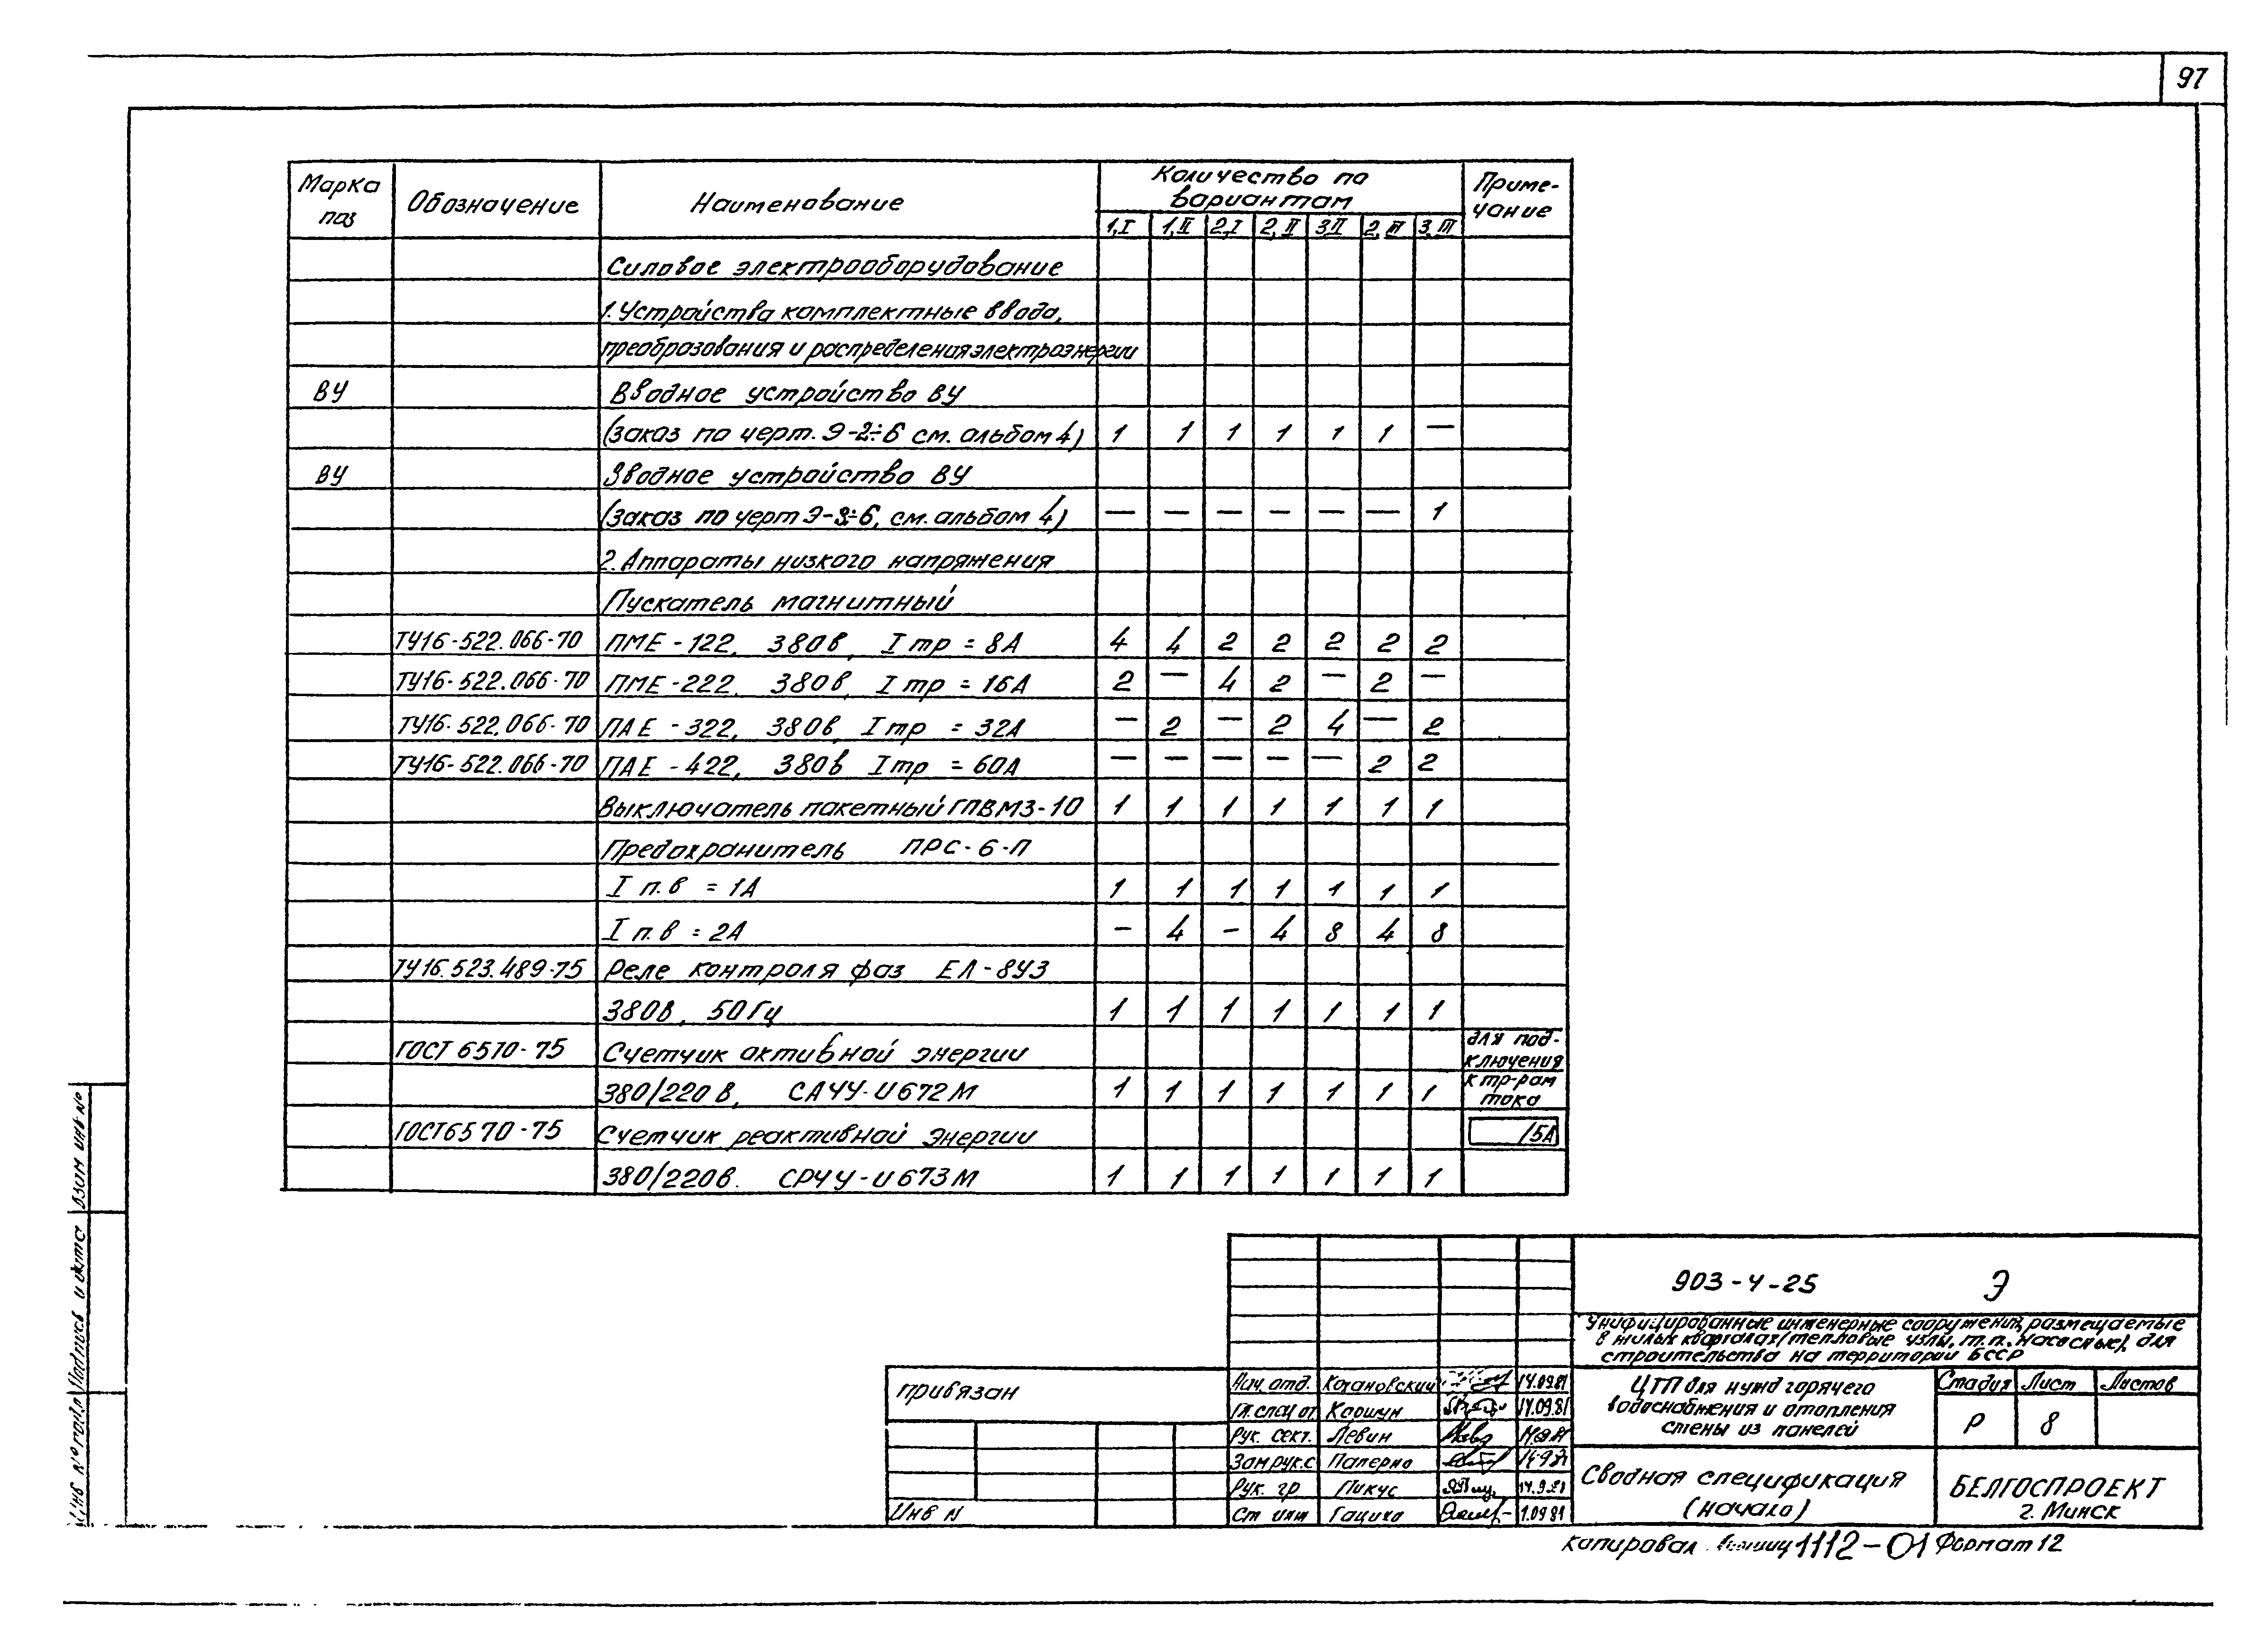 97
Марка поз | Обозначение | Наименование | Количество по вариантам | Примечание
1,I | 1,II | 2,I | 2,II | 3,II | 2,III | 3,III
Силовое электрооборудование
1. Устройства комплектные ввода,
преобразования и распределения электроэнергии
ВУ | Вводное устройство ВУ
(заказ по черт. Э-2÷6 см. альбом 4) | 1 | 1 | 1 | 1 | 1 | 1 | —
ВУ | Вводное устройство ВУ
(заказ по черт Э-3÷6, см. альбом 4) | — | — | — | — | — | — | 1
2. Аппараты низкого напряжения
Пускатель магнитный
ТУ16-522.066-70 | ПМЕ-122, 380в, Iтр = 8А | 4 | 4 | 2 | 2 | 2 | 2 | 2
ТУ16-522.066-70 | ПМЕ-222. 380в, Iтр = 16А | 2 | — | 4 | 2 | — | 2 | —
ТУ16-522.066-70 | ПАЕ-322, 380в, Iтр = 32А | — | 2 | — | 2 | 4 | — | 2
ТУ16-522.066-70 | ПАЕ-422, 380в Iтр = 60А | — | — | — | — | — | 2 | 2
Выключатель пакетный ГПВМ3-10 | 1 | 1 | 1 | 1 | 1 | 1 | 1
Предохранитель ПРС-6-П
I п.в = 1А | 1 | 1 | 1 | 1 | 1 | 1 | 1
I п.в = 2А | — | 4 | — | 4 | 8 | 4 | 8
ТУ16.523.489-75 | Реле контроля фаз ЕЛ-8У3
380в, 50Гц | 1 | 1 | 1 | 1 | 1 | 1 | 1
ГОСТ 6570-75 | Счетчик активной энергии | для подключения
380/220 в, СА4У-И672М | 1 | 1 | 1 | 1 | 1 | 1 | 1 | к тр-рам тока
ГОСТ 6570-75 | Счетчик реактивной энергии | /5А
380/220в. СР4У-И673М | 1 | 1 | 1 | 1 | 1 | 1 | 1
903-4-25 Э
Унифицированные инженерные сооружения, размещаемые
в жилых кварталах (тепловые узлы, т.п., насосные) для
строительства на территории БССР
привязан
Инв N
Нач. отд. Кохановский 14.09.81
Гл. спец от Коршун 14.09.81
Рук. сект. Левин
Зам рук.с Паперно 14.9.81
Рук. гр Пикус 14.9.81
Ст инж Гацихо 1.09 81
ЦТП для нужд горячего
водоснабжения и отопления
стены из панелей
Стадия Лист Листов
Р 8
Сводная спецификация
(начало)
БЕЛГОСПРОЕКТ
г. Минск
копировал 1112-01 Формат 12
Инв № подл Подпись и дата Взам инв №